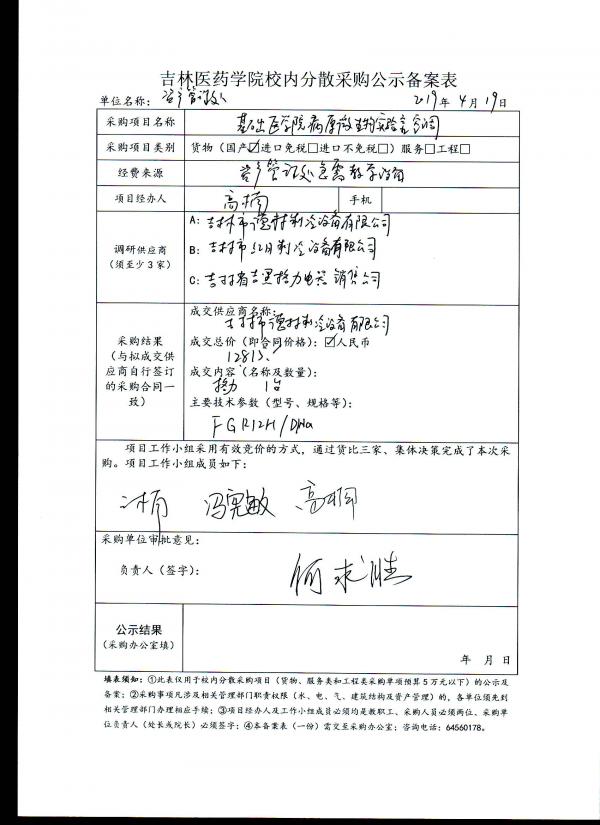 吉林医药学院校内分散采购公示备案表
单位名称：资产管理处 2019年4月19日
采购项目名称 基础医学院病原微生物实验室空调
采购项目类别 货物（国产☑进口免税□进口不免税□）服务□工程□
经费来源 资产管理处急需教学设备
项目经办人 高楠 手机
调研供应商
（须至少3家）
A：吉林市德林制冷设备有限公司
B：吉林市红月制冷设备有限公司
C：吉林省吉里格力电器销售公司
采购结果
（与拟成交供
应商自行签订
的采购合同一
致）
成交供应商名称：
吉林市德林制冷设备有限公司
成交总价（即合同价格）：☑人民币
12813.
成交内容（名称及数量）：
格力 1台
主要技术参数（型号、规格等）：
FGR12H/DNa
项目工作小组采用有效竞价的方式，通过货比三家、集体决策完成了本次采
购。项目工作小组成员如下：
冯宪敏 高楠
采购单位审批意见：
负责人（签字）： 何求胜
公示结果
（采购办公室填）
年 月 日
填表须知：①此表仅用于校内分散采购项目（货物、服务类和工程类采购单项预算5万元以下）的公示及
备案；②采购事项凡涉及相关管理部门职责权限（水、电、气、建筑结构及资产管理）的，各单位须先到
相关管理部门办理相应手续；③项目经办人及工作小组成员必须均是教职工、采购人员必须两位、采购单
位负责人（处长或院长）必须签字；④本备案表（一份）需交至采购办公室；咨询电话：64560178。